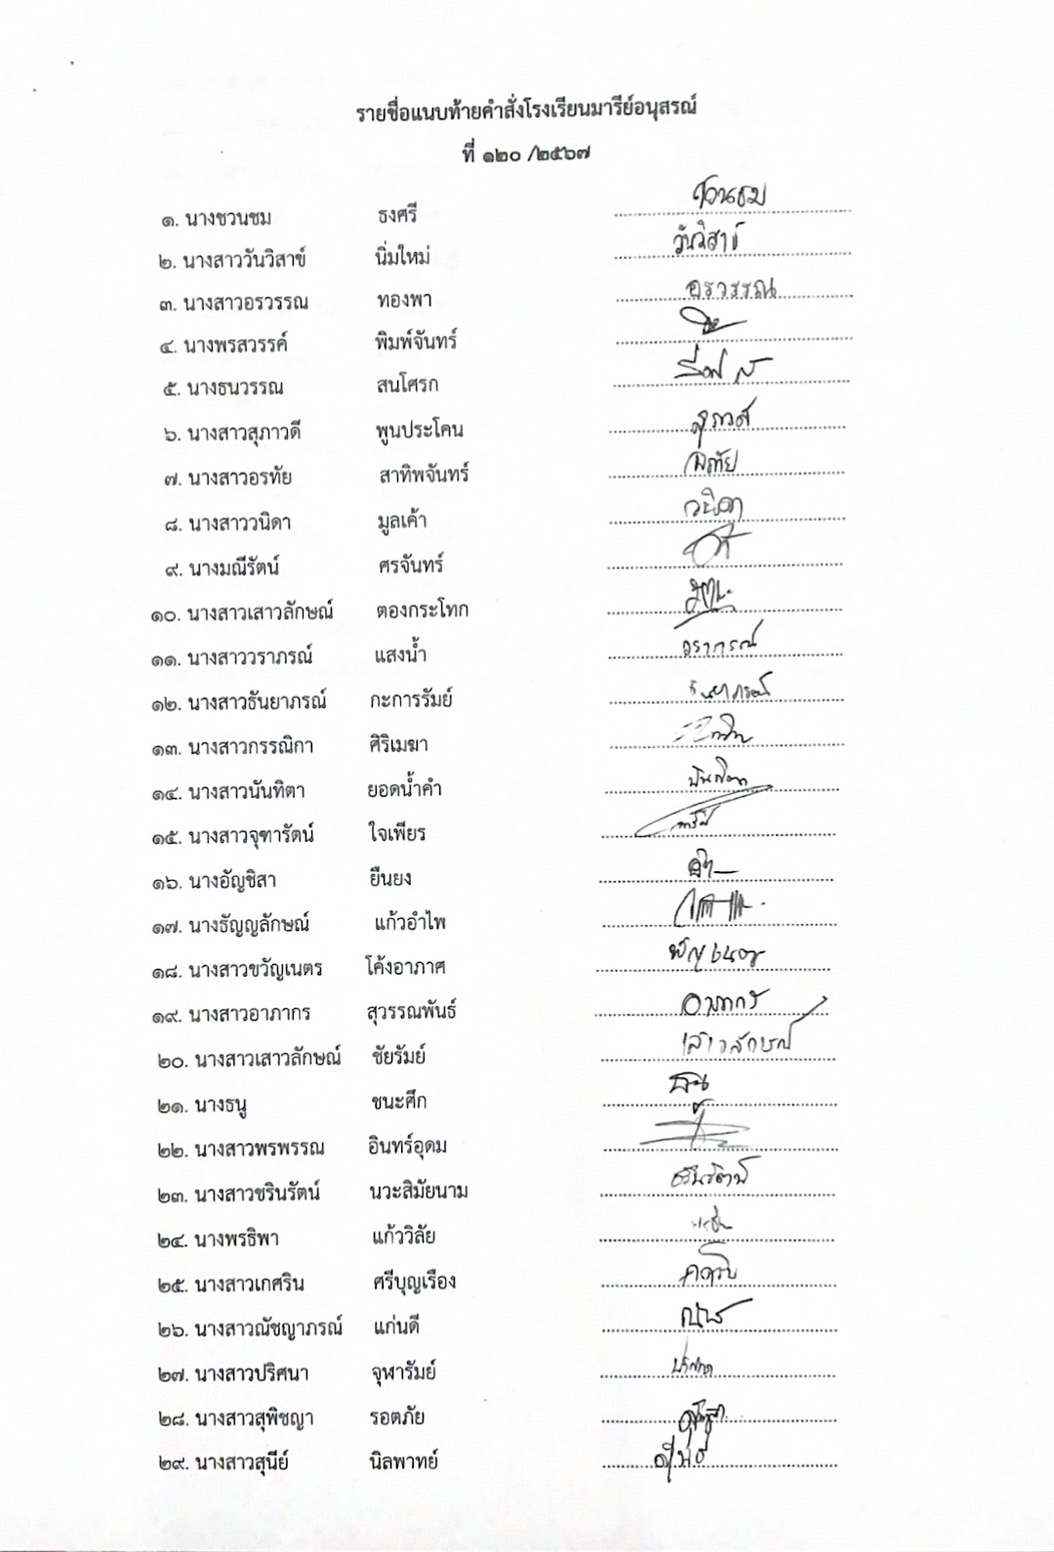 รายชื่อแนบท้ายคำสั่งโรงเรียนมารีย์อนุสรณ์
ที่ ๑๒๐ /๒๕๖๗
๑. นางชวนชม ธงศรี ชวนชม
๒. นางสาววันวิสาข์ นิ่มใหม่ วันวิสาข์
๓. นางสาวอรวรรณ ทองพา อรวรรณ
๔. นางพรสวรรค์ พิมพ์จันทร์
๕. นางธนวรรณ สนโศรก
๖. นางสาวสุภาวดี พูนประโคน
๗. นางสาวอรทัย สาทิพจันทร์ อรทัย
๘. นางสาววนิดา มูลเค้า วนิดา
๙. นางมณีรัตน์ ศรจันทร์
๑๐. นางสาวเสาวลักษณ์ ตองกระโทก
๑๑. นางสาววราภรณ์ แสงน้ำ วราภรณ์
๑๒. นางสาวธันยาภรณ์ กะการรัมย์ ธันยาภรณ์
๑๓. นางสาวกรรณิกา ศิริเมฆา
๑๔. นางสาวนันทิตา ยอดน้ำคำ นันทิตา
๑๕. นางสาวจุฑารัตน์ ใจเพียร
๑๖. นางอัญชิสา ยืนยง
๑๗. นางธัญญลักษณ์ แก้วอำไพ
๑๘. นางสาวขวัญเนตร โค้งอาภาศ ขวัญเนตร
๑๙. นางสาวอาภากร สุวรรณพันธ์ อาภากร
๒๐. นางสาวเสาวลักษณ์ ชัยรัมย์ เสาวลักษณ์
๒๑. นางธนู ชนะศึก ธนู
๒๒. นางสาวพรพรรณ อินทร์อุดม
๒๓. นางสาวชรินรัตน์ นวะสิมัยนาม ชรินรัตน์
๒๔. นางพรธิพา แก้ววิลัย
๒๕. นางสาวเกศริน ศรีบุญเรือง
๒๖. นางสาวณัชญาภรณ์ แก่นดี
๒๗. นางสาวปริศนา จุฬารัมย์ ปริศนา
๒๘. นางสาวสุพิชญา รอตภัย
๒๙. นางสาวสุนีย์ นิลพาทย์